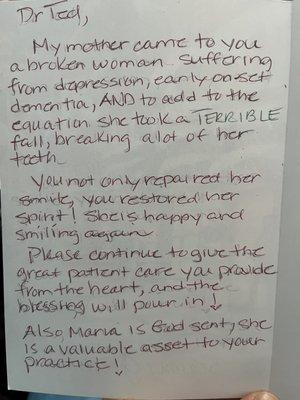 Dr Ted,
My mother came to you
a broken woman suffering
from depression, early onset
dementia, AND to add to the
equation she took a TERRIBLE
fall, breaking a lot of her
teeth
You not only repaired her
smile, you restored her
spirit! She is happy and
smiling again
Please continue to give the
great patient care you provide
from the heart, and the
blessing will pour in!
Also Maria is God sent, she
is a valuable asset to your
practice!